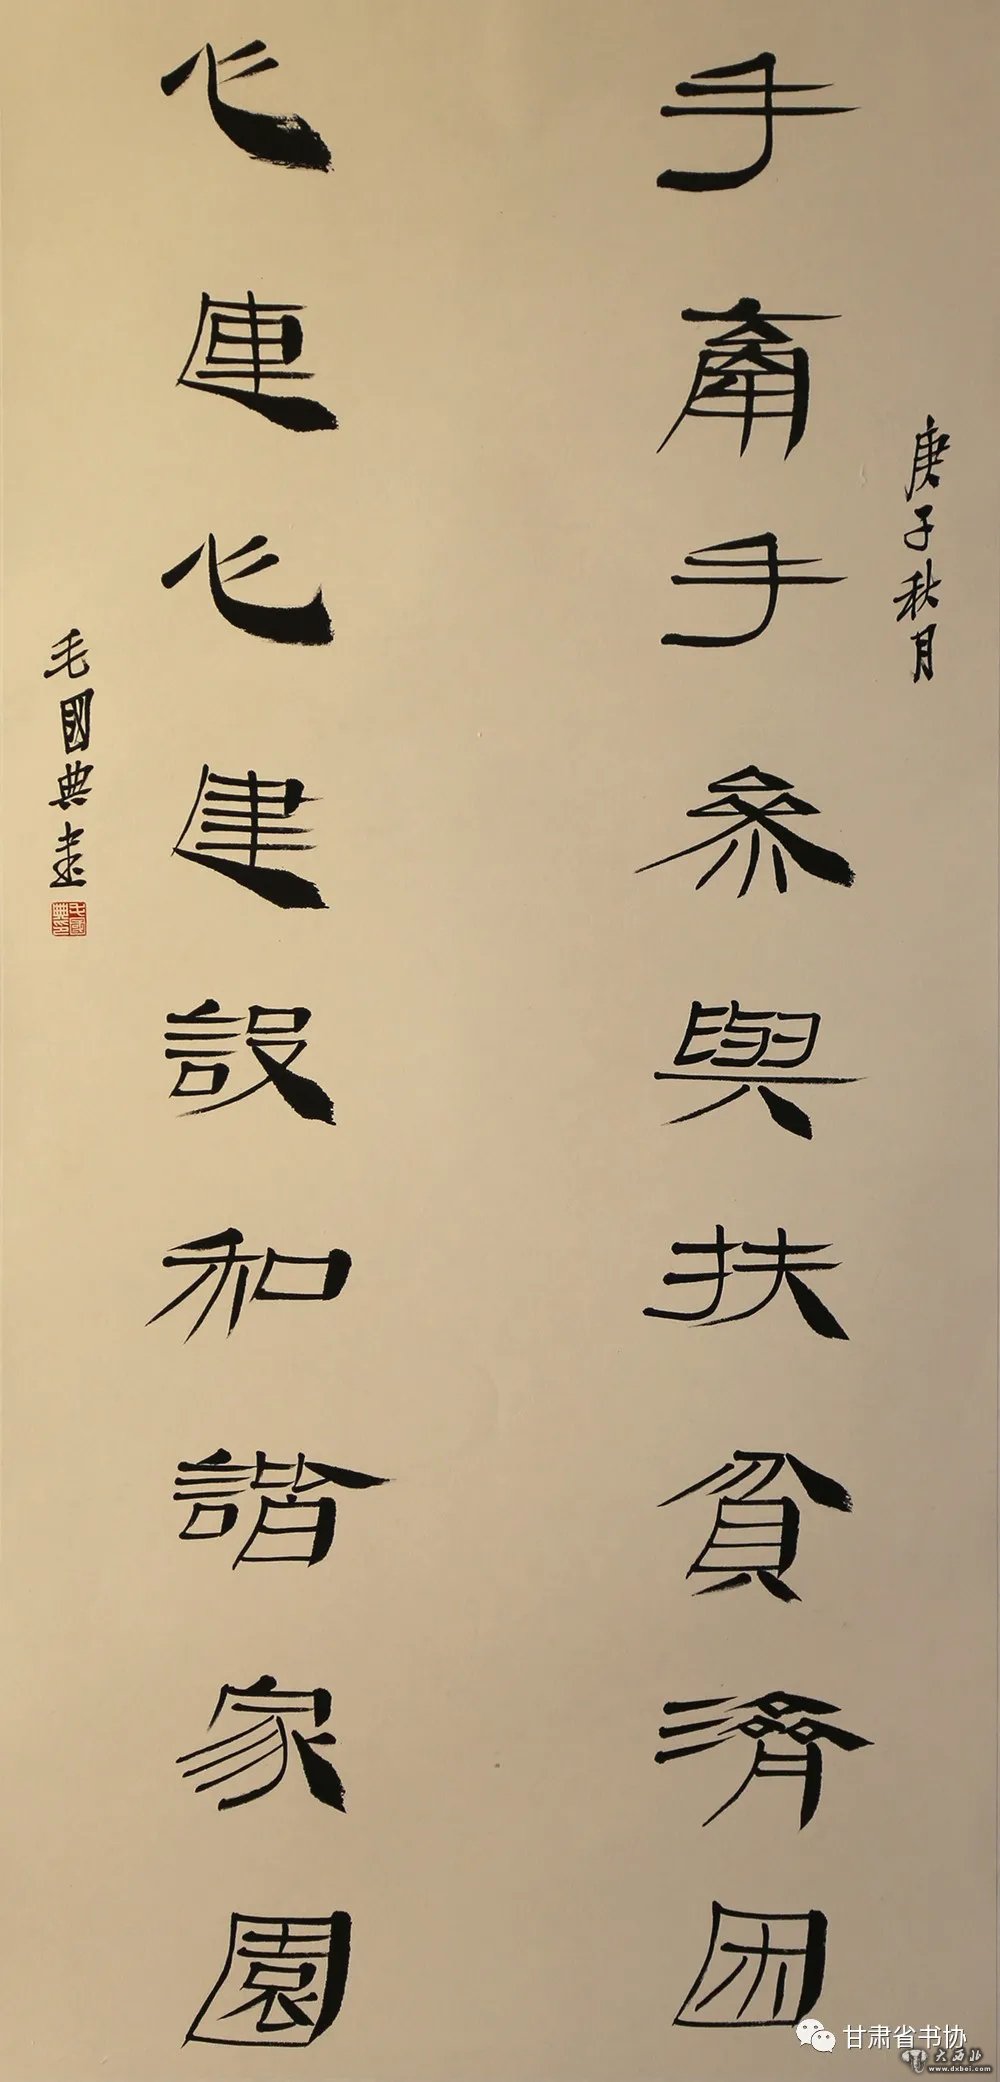 庚子秋月
手牽手參與扶貧濟困
心連心建設和諧家園
毛國典書
毛國典印
甘肃省书协
大西北
www.dxbei.com